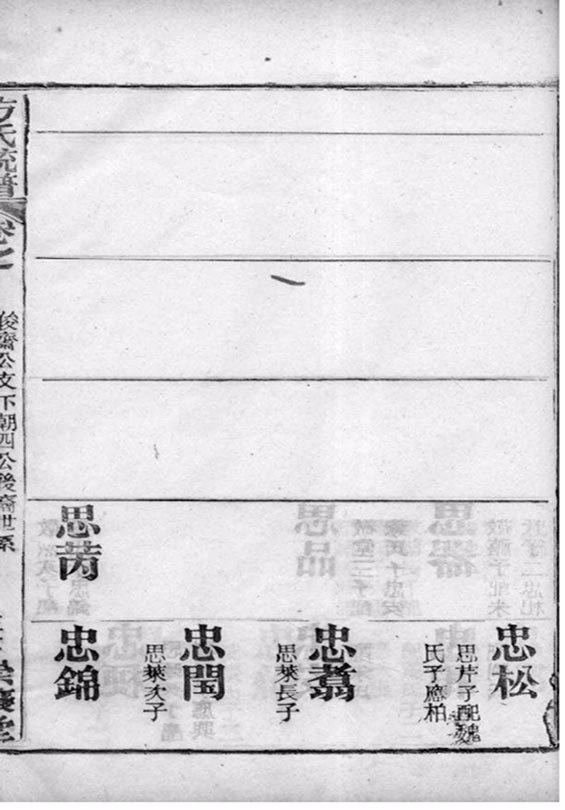 思苪
忠松
思芹子配魏
氏子應柏
忠翥
思萊長子
忠閠
思萊次子
忠錦
方氏統譜
卷之
俊齋公支下朝四公後裔世系